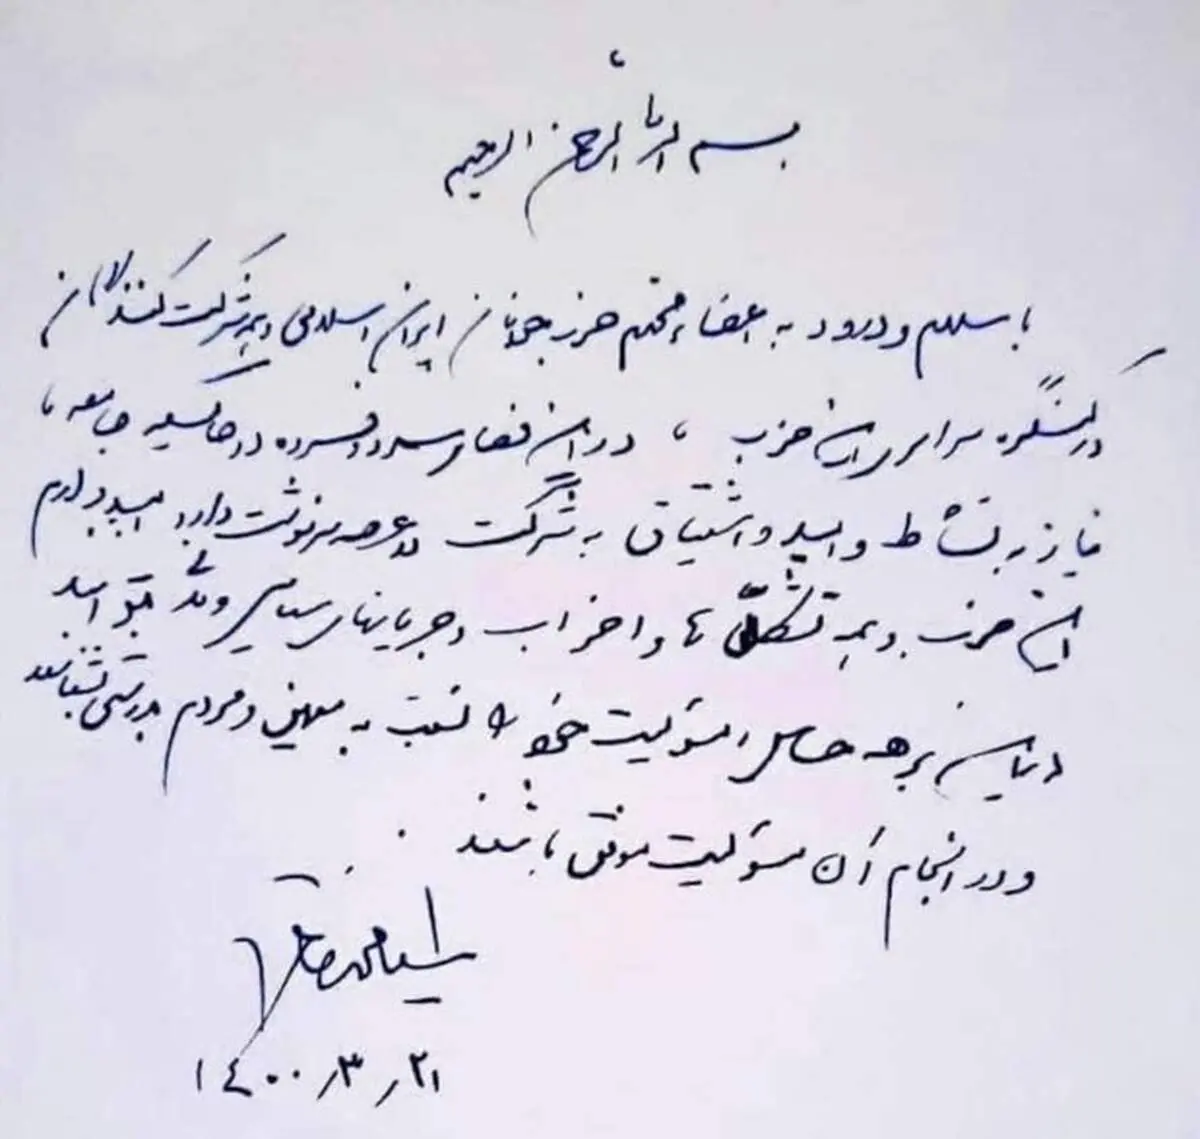 بسم الله الرحمن الرحیم
با سلام و درود به اعضاء محترم حزب جوانان ایران اسلامی و همه شرکت کنندگان
در کنگره سراسری این حزب ، در این فضای سرد و افسرده در حالیکه جامعه ما
نیاز به نشاط و امید و اشتیاق به شرکت در عرصه سرنوشت دارد، امیدوارم
این حزب و همه تشکل ها و احزاب و جریانهای سیاسی و مدنی بتوانند
در این برهه حساس مسئولیت خود را نسبت به میهن و مردم بدرستی بشناسند
و در انجام آن مسئولیت موفق باشند .
سید محمد خاتمی
۱۴۰۰٫۳٫۲۱